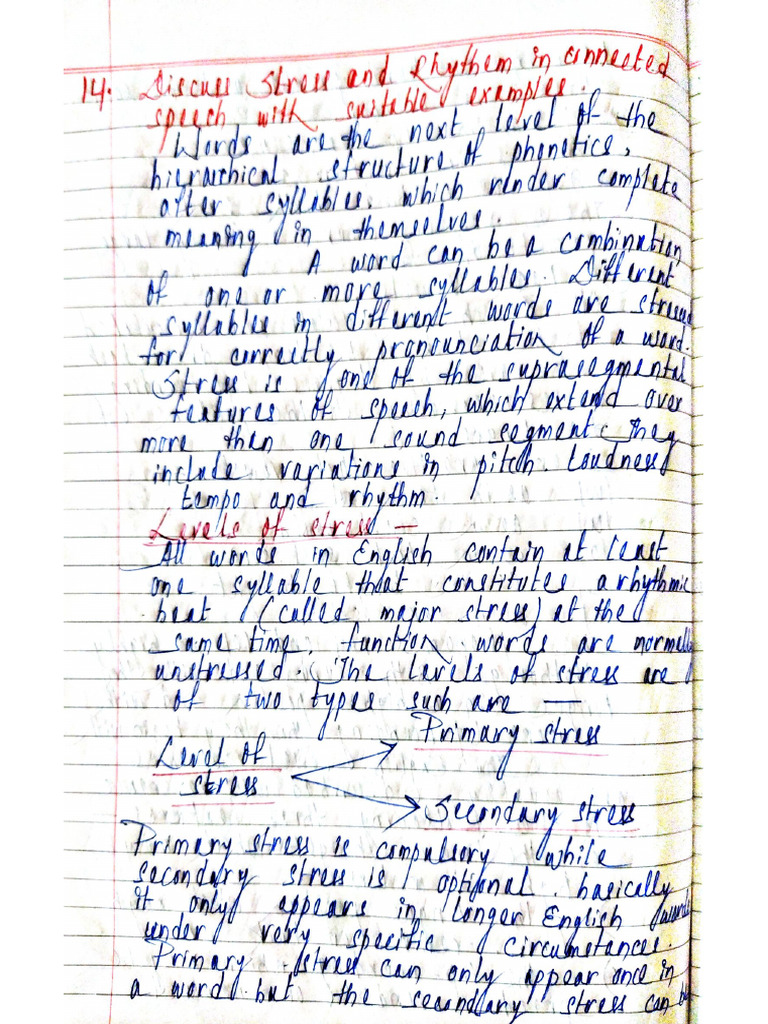 14. Discuss Stress and Rhythem in connected
speech with suitable examples.
Words are the next level of the
hierarchical structure of phonetics,
after syllables, which render complete
meaning in themselves.
A word can be a combination
of one or more syllables. Different
syllables in different words are stressed
for correctly pronounciation of a word.
Stress is one of the suprasegmental
features of speech, which extend over
more than one sound segment. They
include variations in pitch, loudness
tempo and rhythm.
Levels of stress –
All words in English contain at least
one syllable that constitutes a rhythmic
beat (called major stress) at the
same time, function words are normally
unstressed. The levels of stress are
of two types such are —
Primary stress
Level of
stress
Secondary stress
Primary stress is compulsory while
secondary stress is optional. basically
it only appears in longer English words
under very specific circumstances.
Primary stress can only appear once in
a word but the secondary stress can be